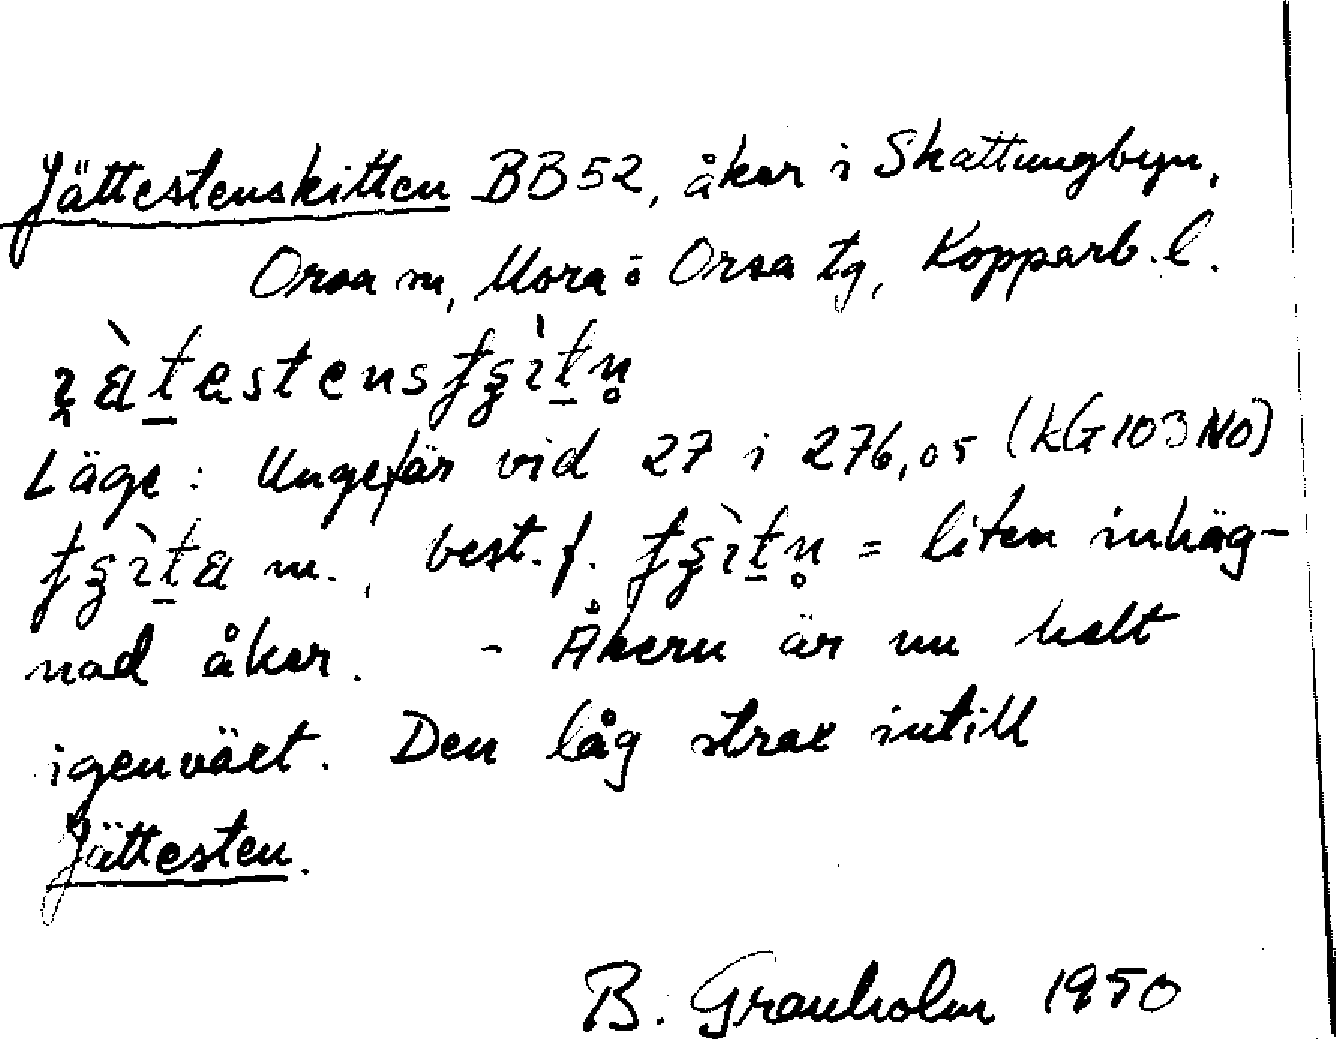 Jättestenskitten BB52, åker i Skattungbyn,
Orsa sn, Mora o Orsa tg, Kopparb. l.
Läge: Ungefär vid 27 i 276,05 (KG103NO)
m., best. f. = liten inhäg-
nad åker. - Åkern är nu helt
igenväxt. Den låg strax intill
Jättesten.
B. Granholm 1950